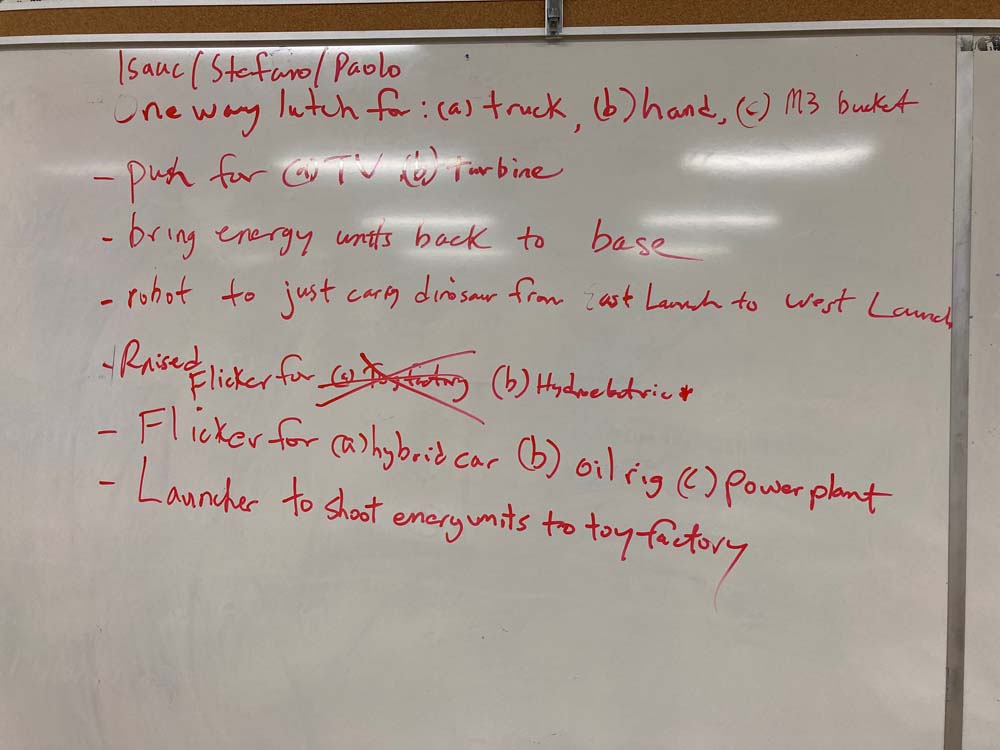 Isaac/Stefano/Paolo
One way latch for: (a) truck, (b) hand, (c) M3 bucket
- push for (a) TV (b) turbine
- bring energy units back to base
- robot to just carry dinosaur from East Launch to West Launch
- Raised
Flicker for (a) Toy factory (b) Hydroelectric*
- Flicker for (a) hybrid car (b) oil rig (c) power plant
- Launcher to shoot energy units to toy factory